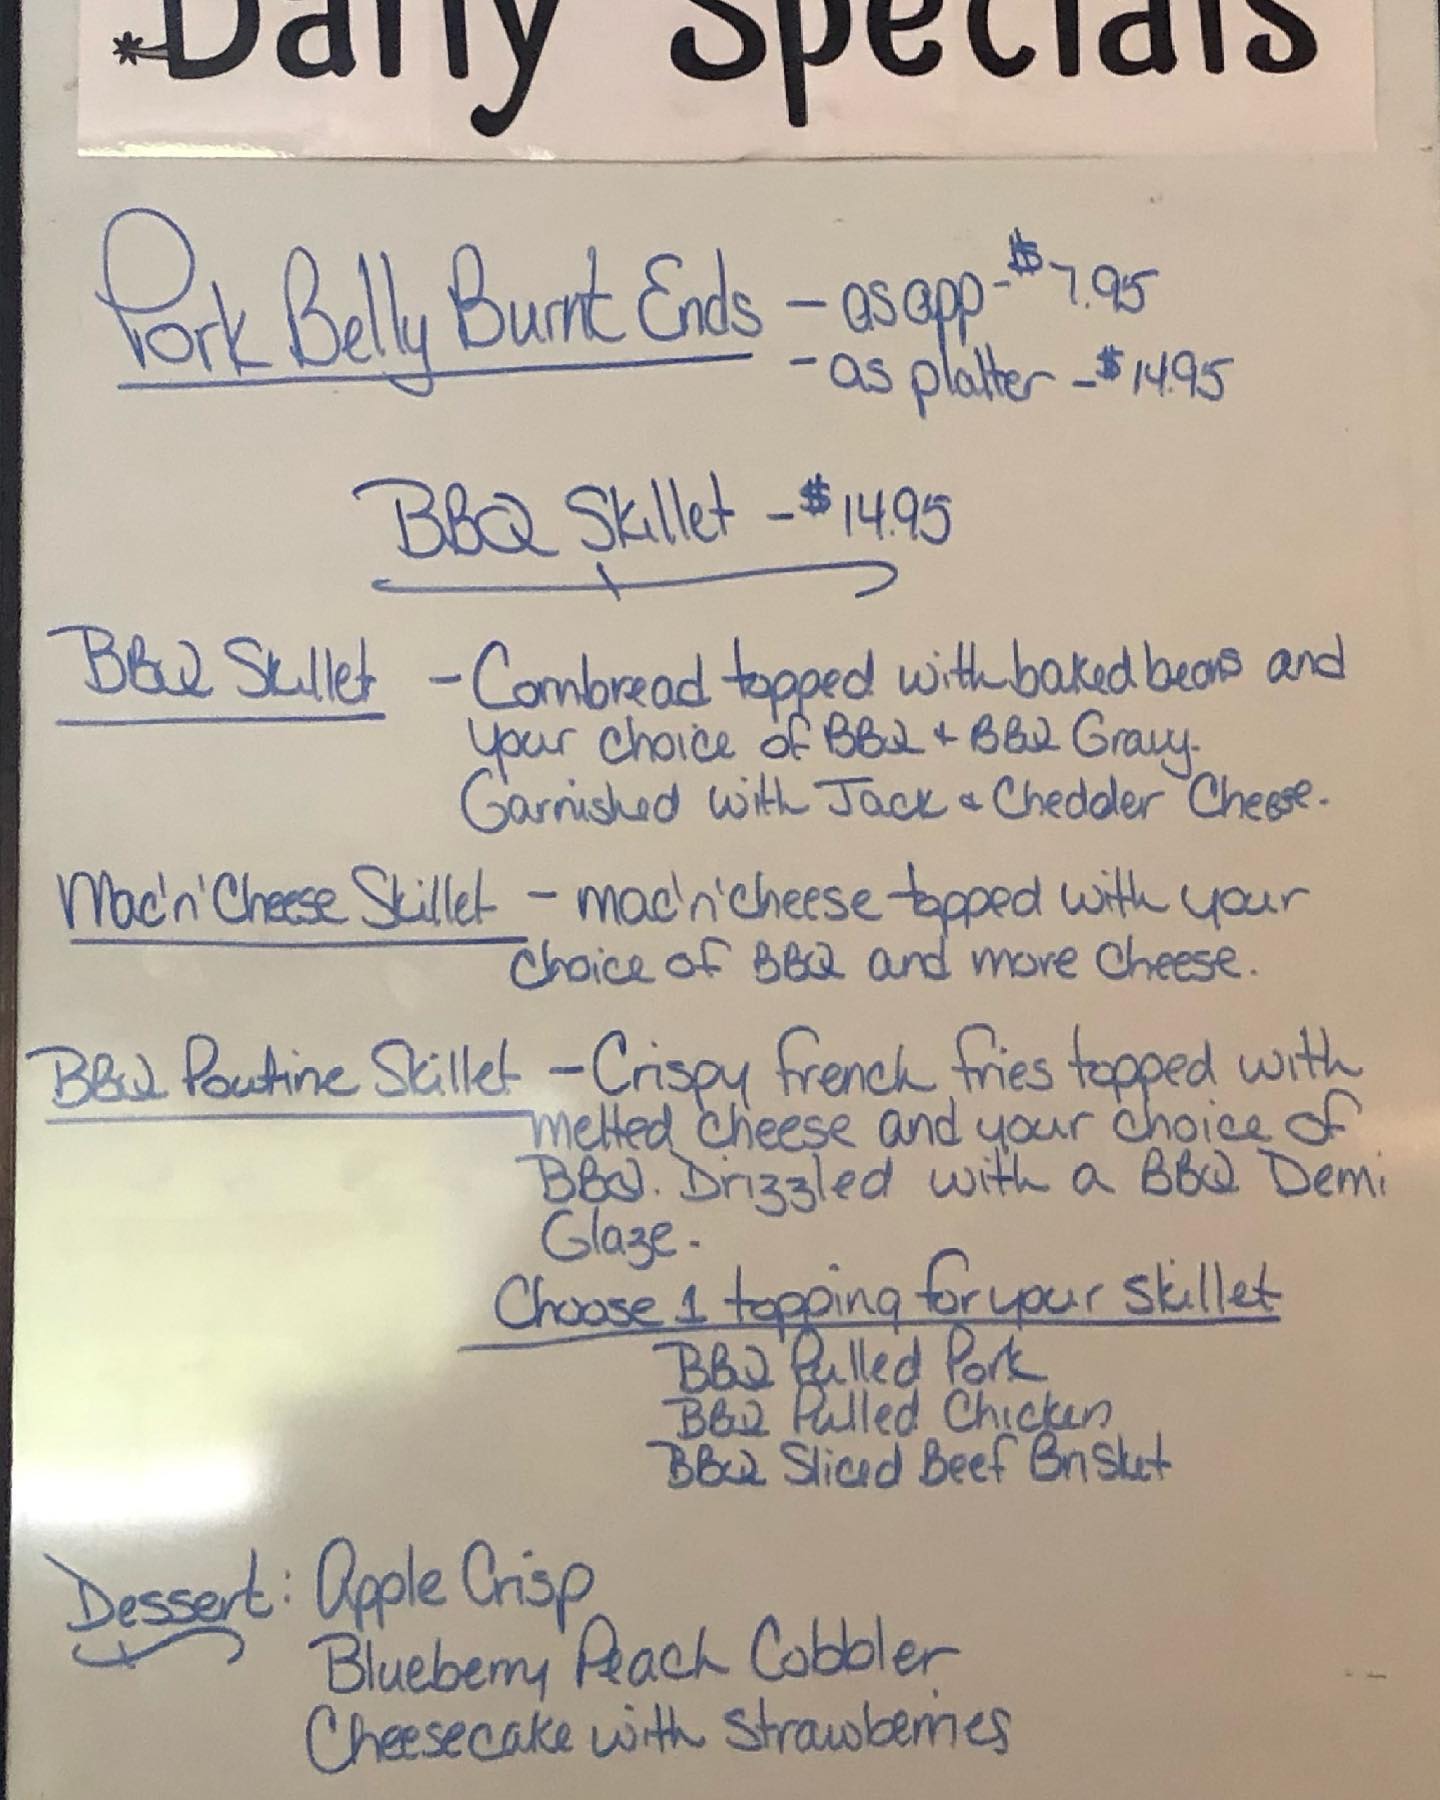 *Daily Specials
Pork Belly Burnt Ends - as app - $7.95
- as platter - $14.95
BBQ Skillet - $14.95
BBQ Skillet - Cornbread topped with baked beans and
your choice of BBQ + BBQ Gravy.
Garnished with Jack & Cheddar Cheese.
Mac'n'Cheese Skillet - mac'n'cheese topped with your
choice of BBQ and more cheese.
BBQ Poutine Skillet - Crispy french fries topped with
melted cheese and your choice of
BBQ. Drizzled with a BBQ Demi
Glaze.
Choose 1 topping for your skillet
BBQ Pulled Pork
BBQ Pulled Chicken
BBQ Sliced Beef Brisket
Dessert: Apple Crisp
Blueberry Peach Cobbler
Cheesecake with strawberries